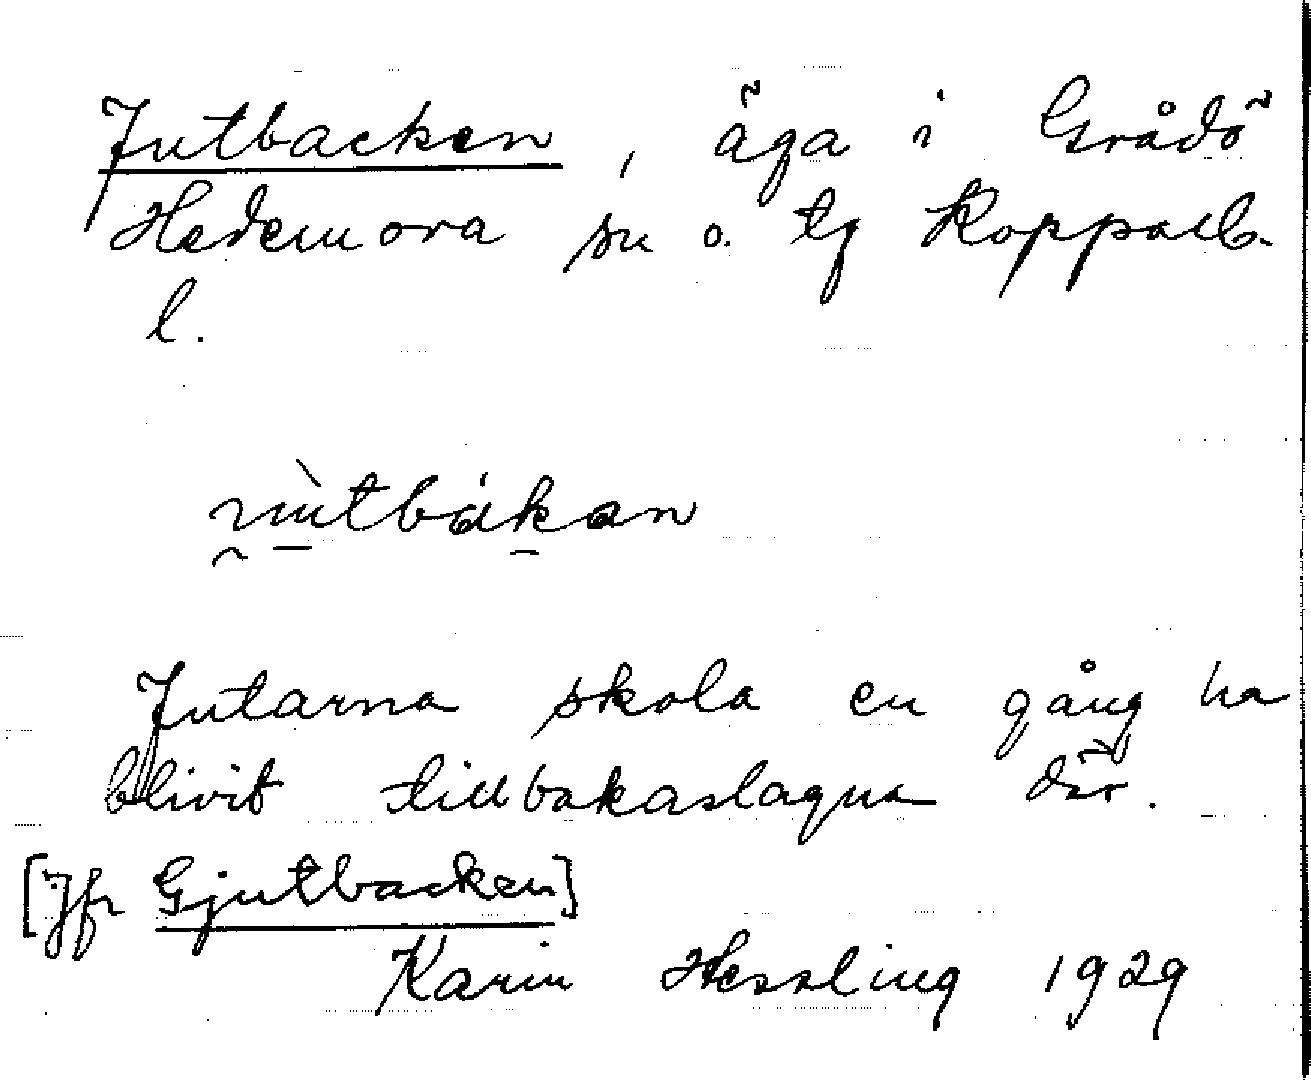 Jutbacken, äga i Grådö
Hedemora sn o. tg Kopparb.
l.
Jutarna skola en gång ha
blivit tillbakaslagna där.
[Jfr Gjutbacken]
Karin Hessling 1929